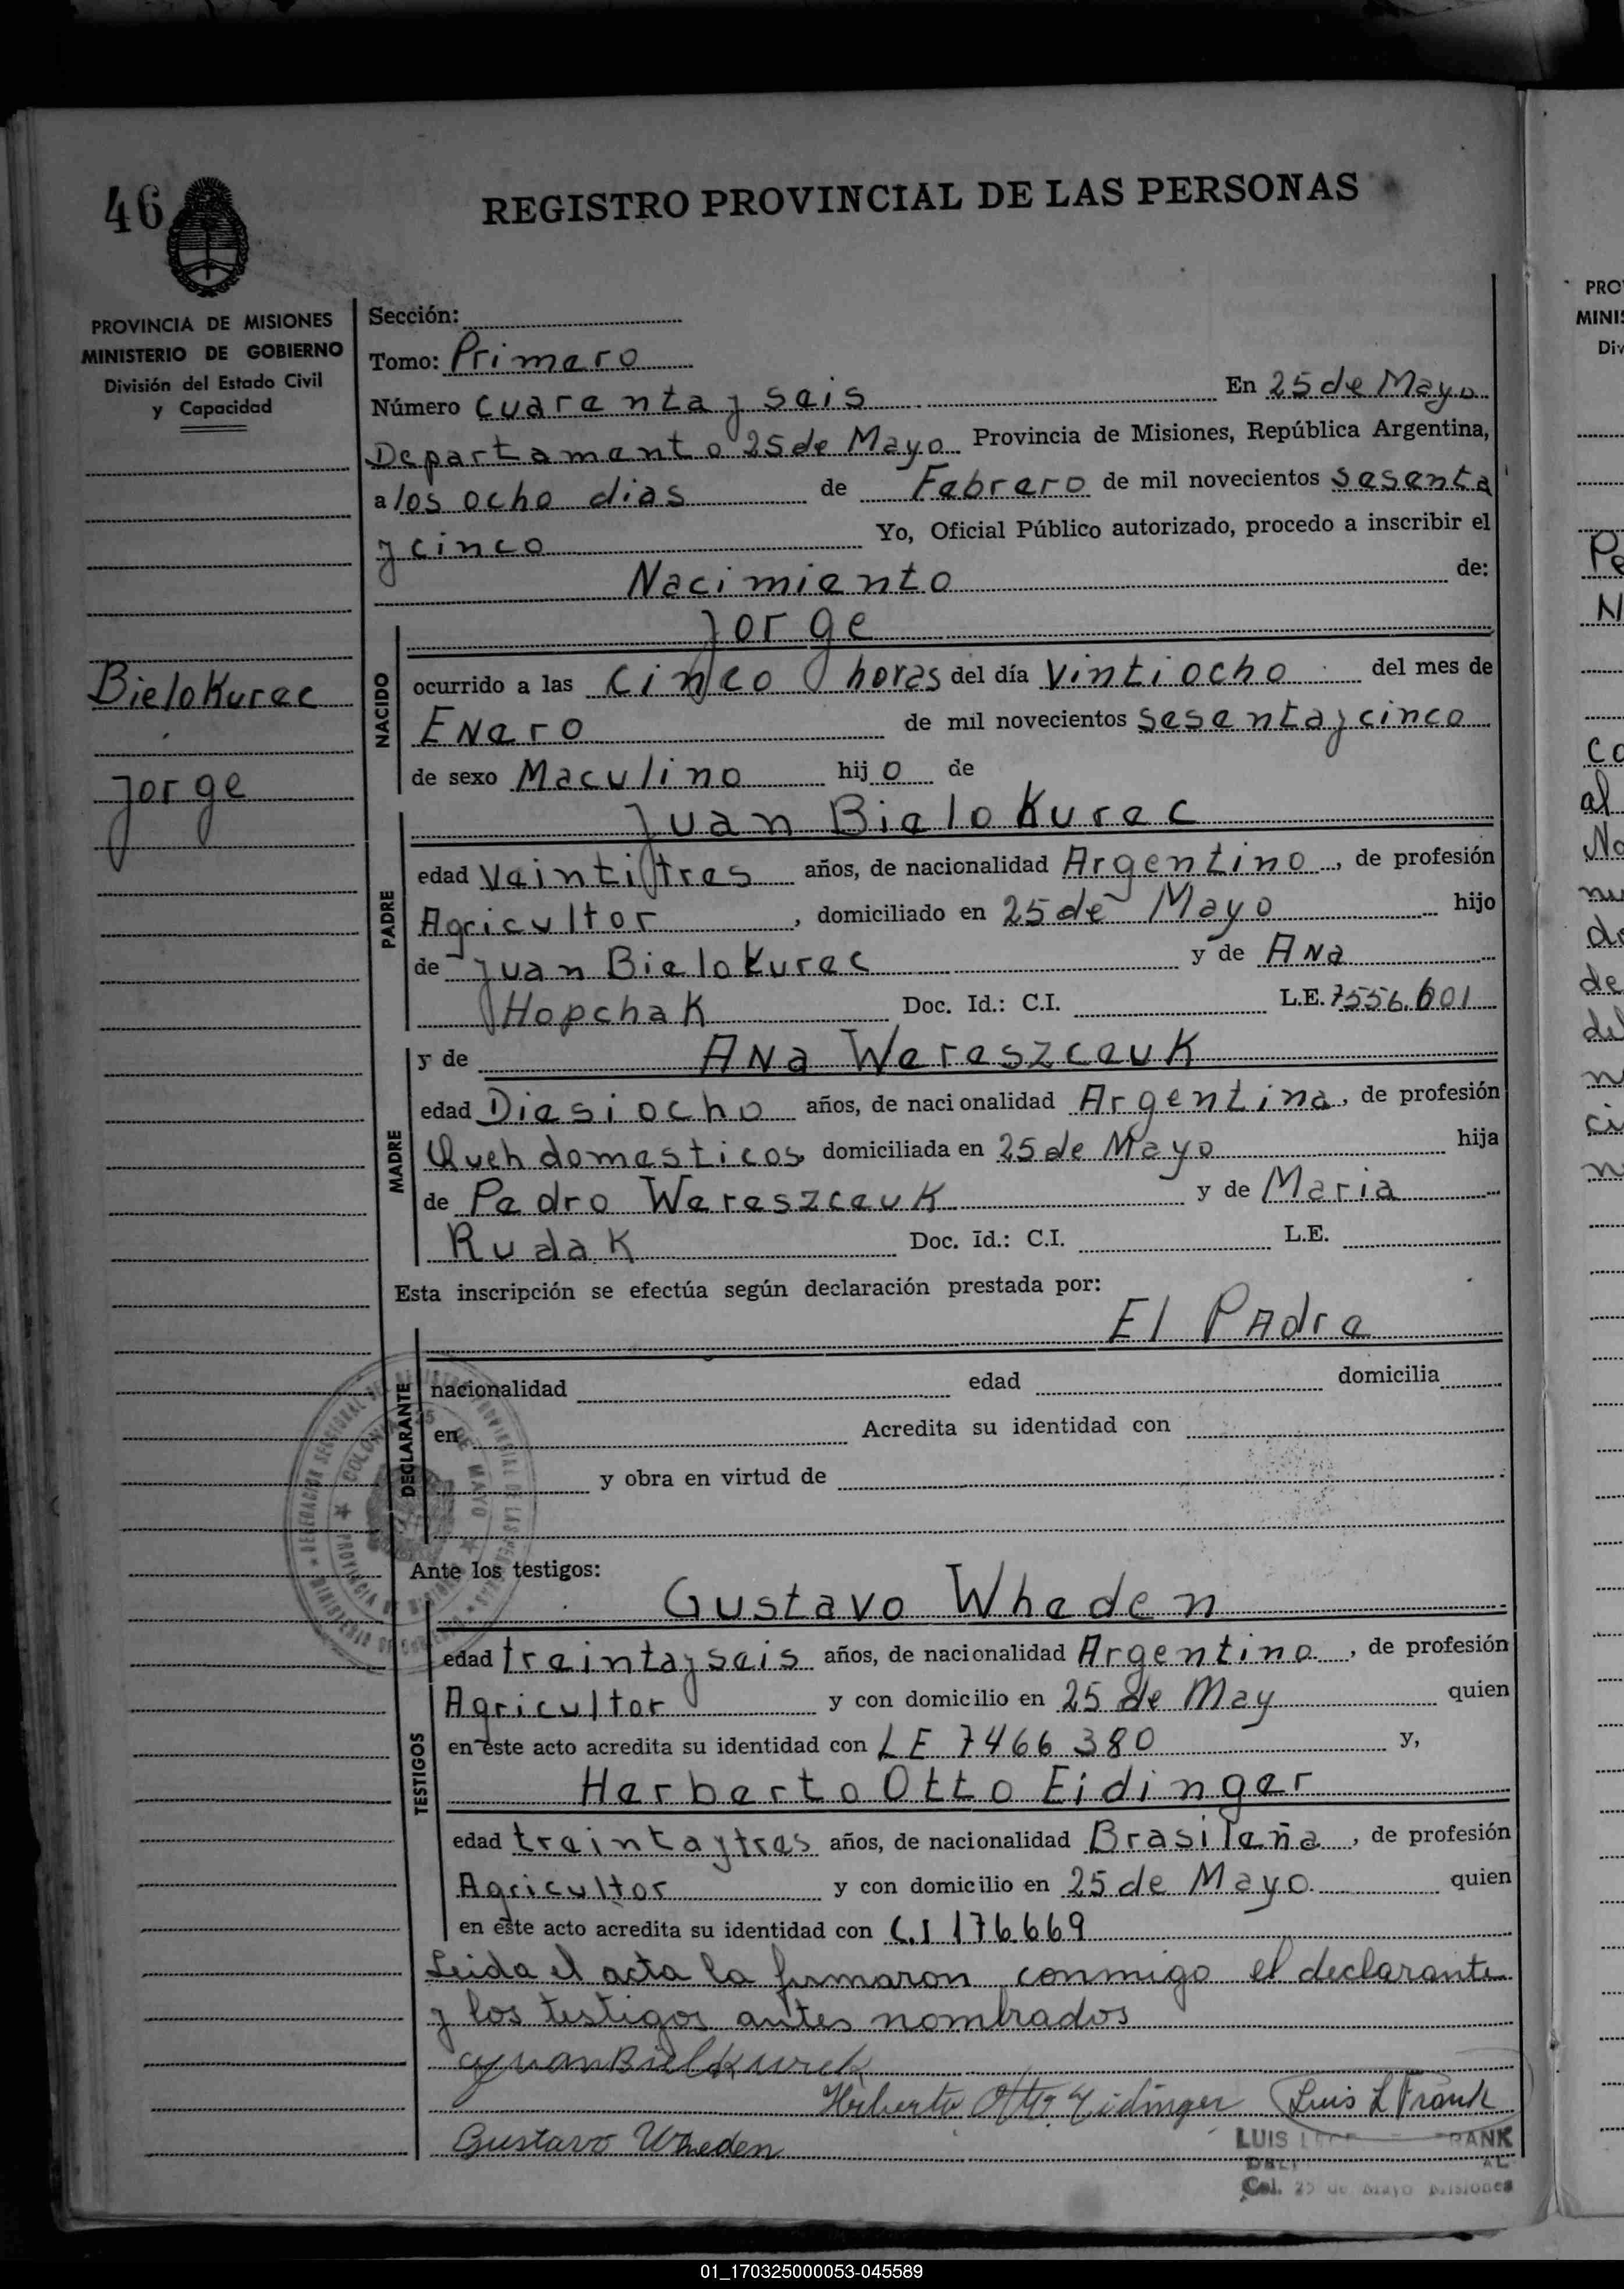 46
REGISTRO PROVINCIAL DE LAS PERSONAS
PROVINCIA DE MISIONES
MINISTERIO DE GOBIERNO
División del Estado Civil
y Capacidad
Bielokurec
Jorge
Sección:
Tomo: Primero
Número cuarenta y seis En 25 de Mayo
Departamento 25 de Mayo Provincia de Misiones, República Argentina,
a los ocho dias de Febrero de mil novecientos sesenta
y cinco Yo, Oficial Público autorizado, procedo a inscribir el
Nacimiento de:
NACIDO
Jorge
ocurrido a las cinco horas del día vintiocho del mes de
Enero de mil novecientos sesenta y cinco
de sexo Maculino hijo de
PADRE
Juan Bielokurec
edad Veintitres años, de nacionalidad Argentino, de profesión
Agricultor, domiciliado en 25 de Mayo hijo
de Juan Bielokurec y de Ana
Hopchak Doc. Id.: C.I. L.E. 7556.601
MADRE
y de Ana Wereszceuk
edad Diesiocho años, de nacionalidad Argentina, de profesión
Queh domesticos, domiciliada en 25 de Mayo hija
de Pedro Wereszceuk y de Maria
Rudak Doc. Id.: C.I. L.E.
Esta inscripción se efectúa según declaración prestada por:
El Padre
DECLARANTE
nacionalidad edad domicilia
en Acredita su identidad con
y obra en virtud de
Ante los testigos:
TESTIGOS
Gustavo Wheden
edad treinta y seis años, de nacionalidad Argentino, de profesión
Agricultor y con domicilio en 25 de May quien
en este acto acredita su identidad con LE 7466380 y,
Herberto Otto Eidinger
edad treinta y tres años, de nacionalidad Brasileña, de profesión
Agricultor y con domicilio en 25 de Mayo quien
en este acto acredita su identidad con C.I 176.669
Leida el acta la firmaron conmigo el declarante
y los testigos antes nombrados
Juan Bielkurek
Herberto Otto Eidinger Luis L Frank
Gustavo Wheden
LUIS FRANK
Col. 25 de Mayo Misiones
01_170325000053-045589